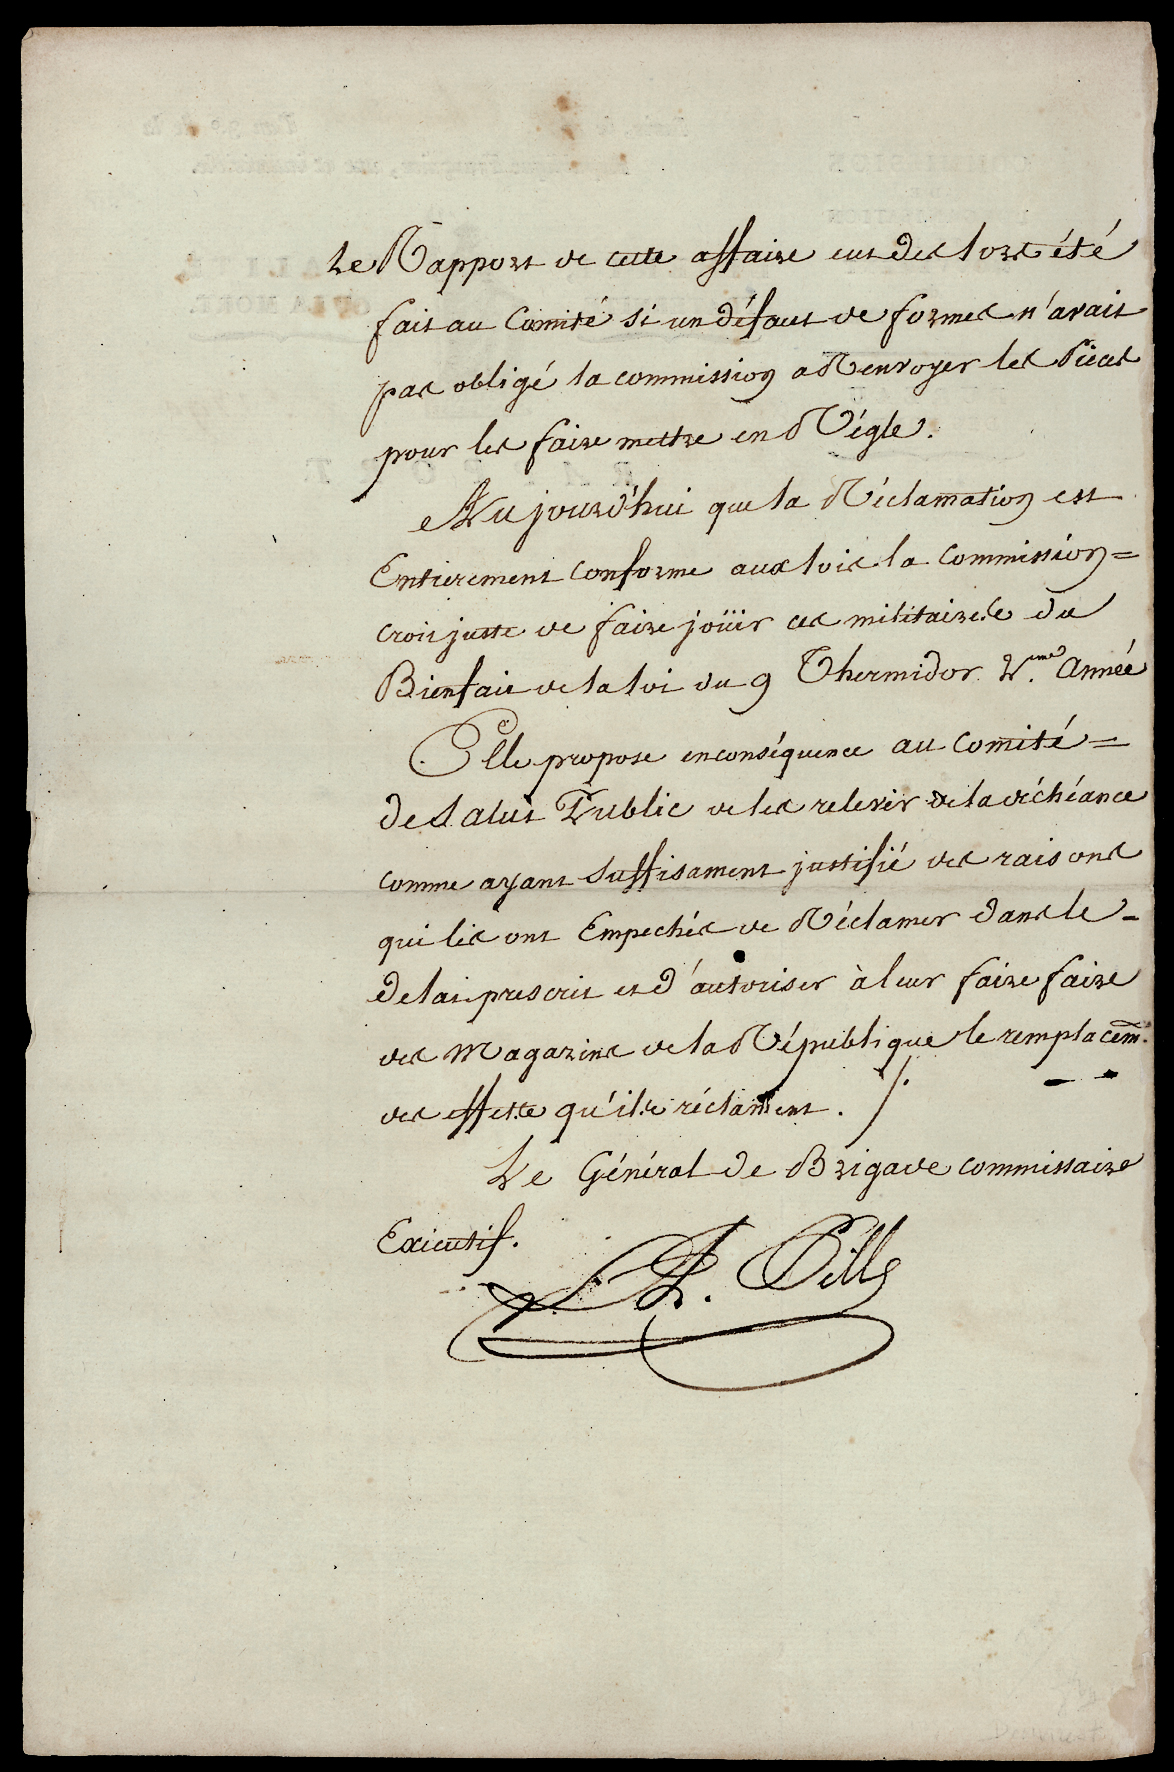 Le Rapport de cette affaire eut des lors été
fait au Comité si un défaut de formes n'avait
pas obligé la commission a Renvoyer les Pieces
pour les faire mettre en Régle.
Aujourd'hui que la Réclamation est
Entierement conforme aux lois la Commission=
croit juste de faire joüir ces militaires du
Bienfait de la loi du 9 Thermidor 2.eme année
Elle propose en conséquence au Comité=
de Salut Public de les relevir de la déchéance
comme ayant suffisament justifié des raisons
qui les ont Empechés de Réclamer dans le-
delai prescrit et d'autoriser à leur faire faire
des Magazins de la République le remplacem.
des effets qu'ils réclament. /.
Le Général de Brigade commissaire
Exécutif.
L. A. Pille